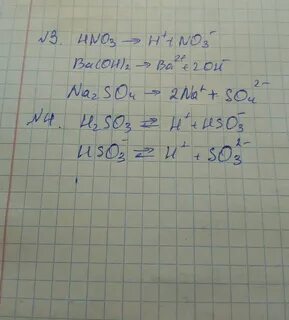 №3. HNO₃ → H⁺ + NO₃⁻
Ba(OH)₂ → Ba²⁺ + 2OH⁻
Na₂SO₄ → 2Na⁺ + SO₄²⁻
№4. H₂SO₃ ⇄ H⁺ + HSO₃⁻
HSO₃⁻ ⇄ H⁺ + SO₃²⁻